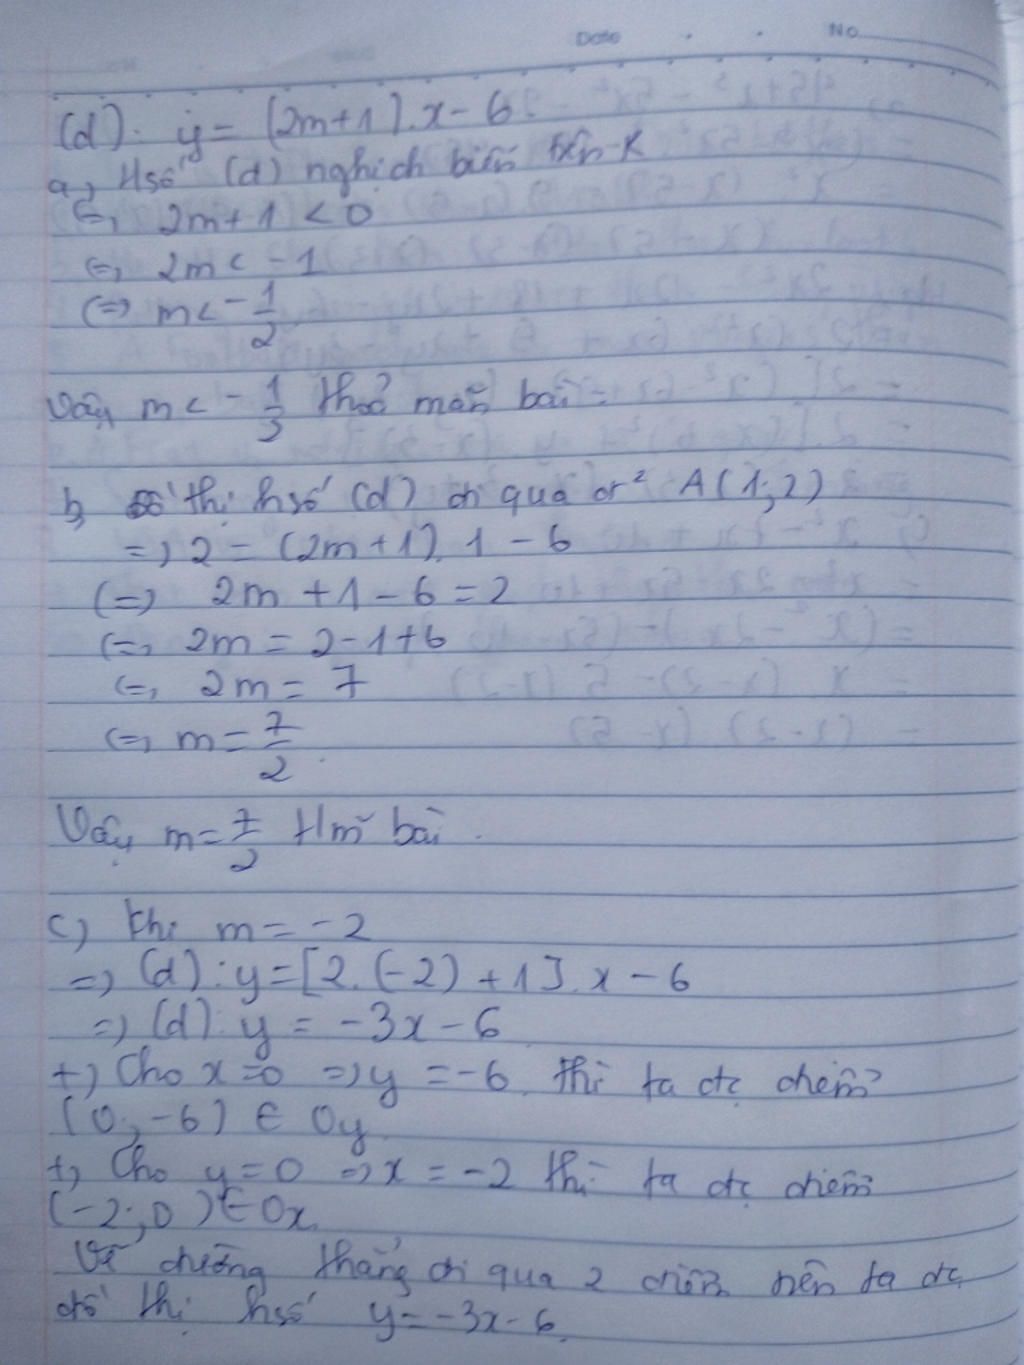 Date No
(d): y = (2m+1).x - 6
a, Hsố (d) nghịch biến trên R
<=> 2m+1 < 0
<=> 2m < -1
<=> m < -1/2
Vậy m < -1/2 thoả mãn bài
b, đồ thị hsố (d) đi qua đ² A(1;2)
=> 2 = (2m+1).1 - 6
<=> 2m + 1 - 6 = 2
<=> 2m = 2-1+6
<=> 2m = 7
<=> m = 7/2.
Vậy m = 7/2 tmĩ bài.
c) Khi m = -2
=> (d): y = [2.(-2) + 1].x - 6
=> (d): y = -3x - 6
+) Cho x=0 => y = -6 thì ta đc điểm
(0;-6) ∈ Oy
+) Cho y=0 => x = -2 thì ta đc điểm
(-2;0) ∈ Ox.
Vẽ đường thẳng đi qua 2 điểm nên ta đc
đồ thị hsố y = -3x - 6.